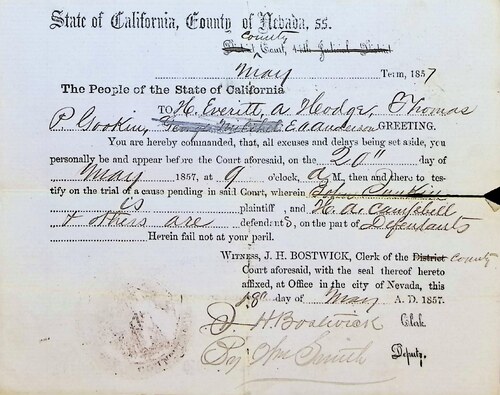 State of California, County of Nevada, ss.
County
District Court, 14th Judicial District
May Term, 1857
The People of the State of California
TO H. Everitt, A Hodge, Thomas
P. Gookin, E A Anderson GREETING.
You are hereby commanded, that, all excuses and delays being set aside, you
personally be and appear before the Court aforesaid, on the 20th day of
May 1857, at 9 o'clock, A M., then and there to tes-
tify on the trial of a cause pending in said Court, wherein John
is plaintiff, and H. A. Campbell
& others are defendants, on the part of Defendants
Herein fail not at your peril.
WITNESS, J. H. BOSTWICK, Clerk of the District County
Court aforesaid, with the seal thereof hereto
affixed, at Office in the city of Nevada, this
18th day of May A. D. 1857.
J. H. Bostwick Clerk
By Wm Smith Deputy.